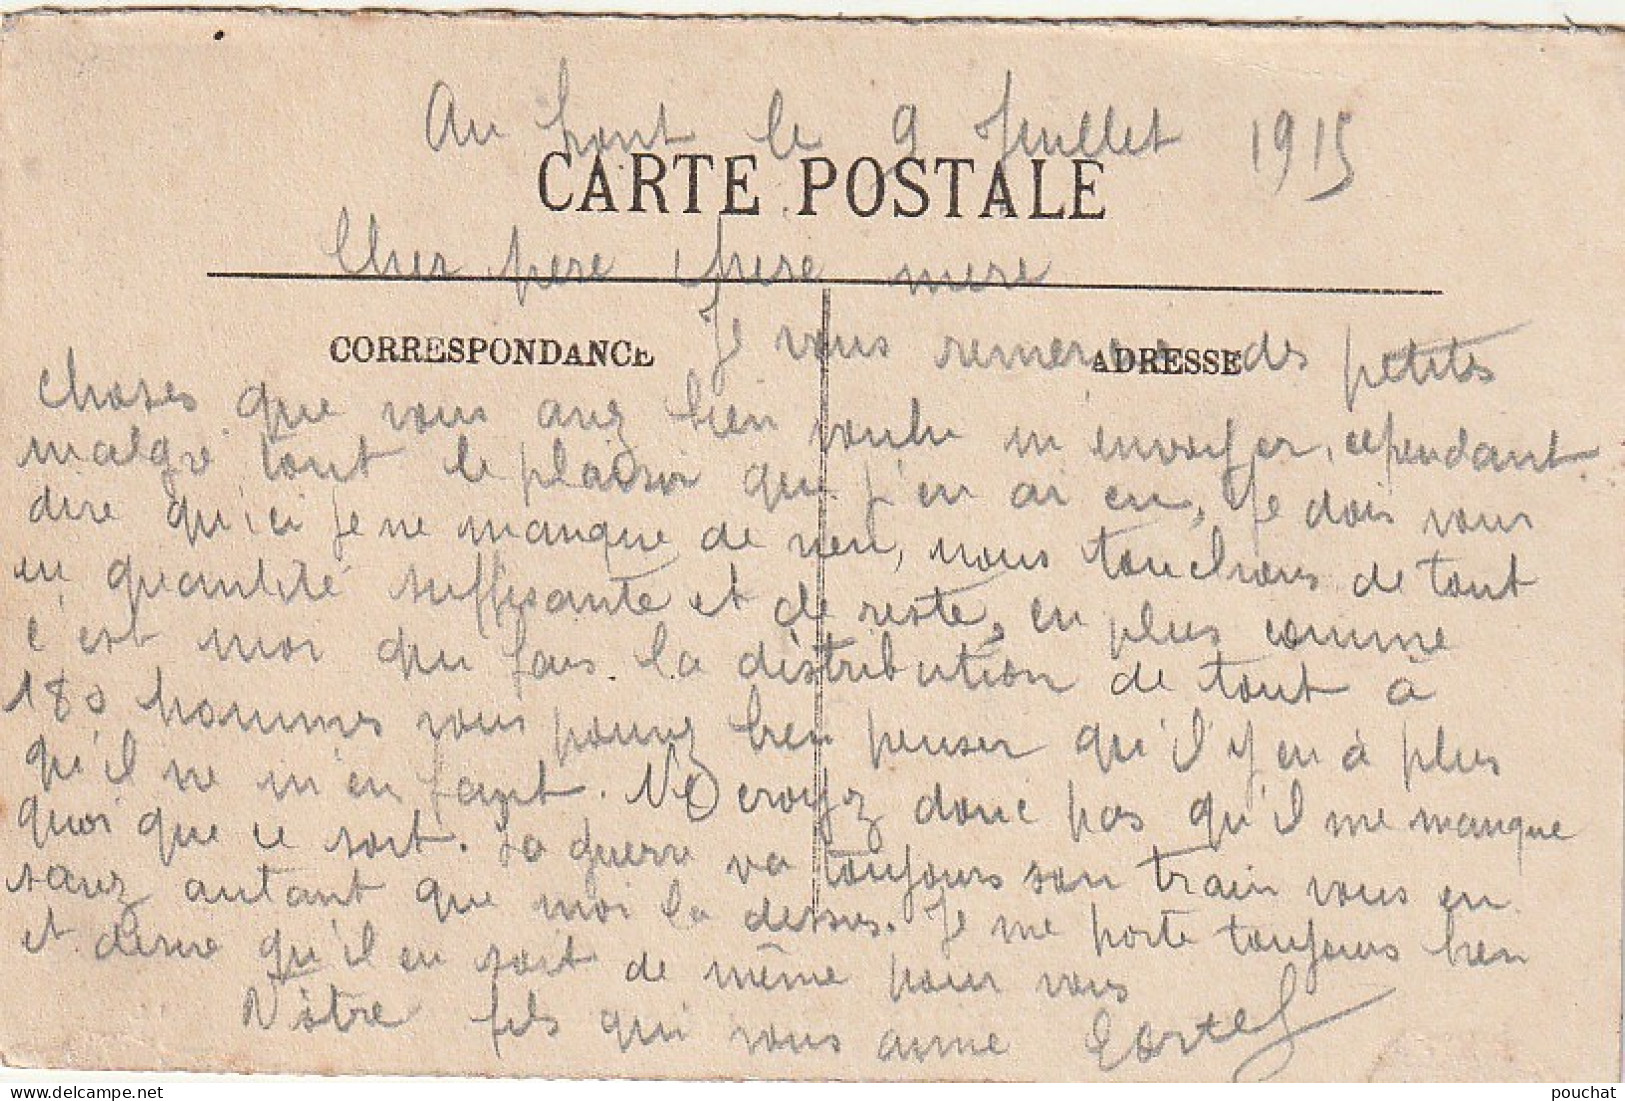 Au front le 9 Juillet 1915
CARTE POSTALE
Cher père chère mère
CORRESPONDANCE
ADRESSE
Je vous remercie des petites
choses que vous avez bien voulu m'envoyer, cependant
malgré tout le plaisir que j'en ai eu, je dois vous
dire qu'ici je ne manque de rien, nous touchons de tout
en quantité suffisante et de reste, en plus comme
c'est moi qui fais la distribution de tout à
180 hommes vous pouvez bien penser qu'il y en à plus
qu'il ne m'en faut. Ne croyez donc pas qu'il me manque
quoi que ce soit. La guerre va toujours son train vous en
savez autant que moi la dessus. Je me porte toujours bien
et désire qu'il en soit de même pour vous
Vôtre fils qui vous aime
pouchat